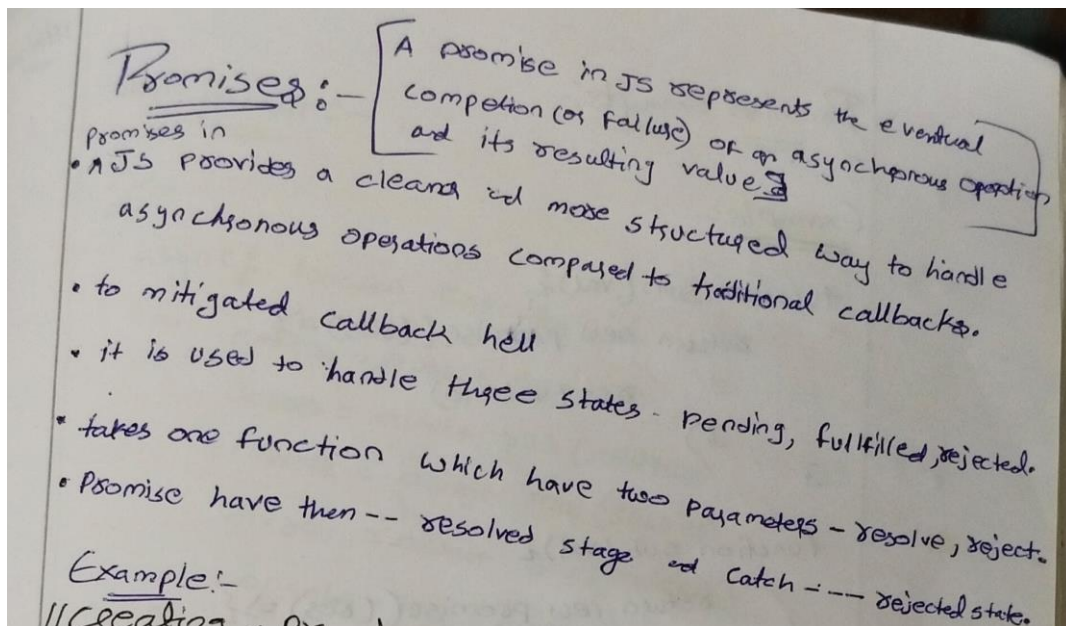 Promises :-
[ A promise in JS represents the eventual
competion (or failure) of an asynchronous operation
and its resulting value ]
promises in
• ^ JS provides a cleaner and more structured way to handle
asynchronous operations compared to traditional callbacks.
• to mitigated callback hell
• it is used to handle three states - pending, fullfilled, rejected.
• takes one function which have two parameters - resolve, reject.
• Promise have then -- resolved stage and catch :--- rejected state.
Example :-
// Creating